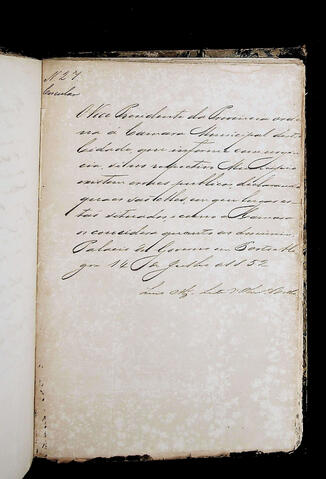 N 27.
Circular
O Vice Presidente da Provincia orde
na á Camara Municipal desta
Cidade que informe com urgen
cia, si no respectivo Municipio
existem arêas publicas, declarando
quaes são ellas, em que lugar es
tão situadas e como a Camara
as considera quanto ao dominio.
Palacio do Governo em Porto Ale
gre 14 de Julho de 1852
Luis